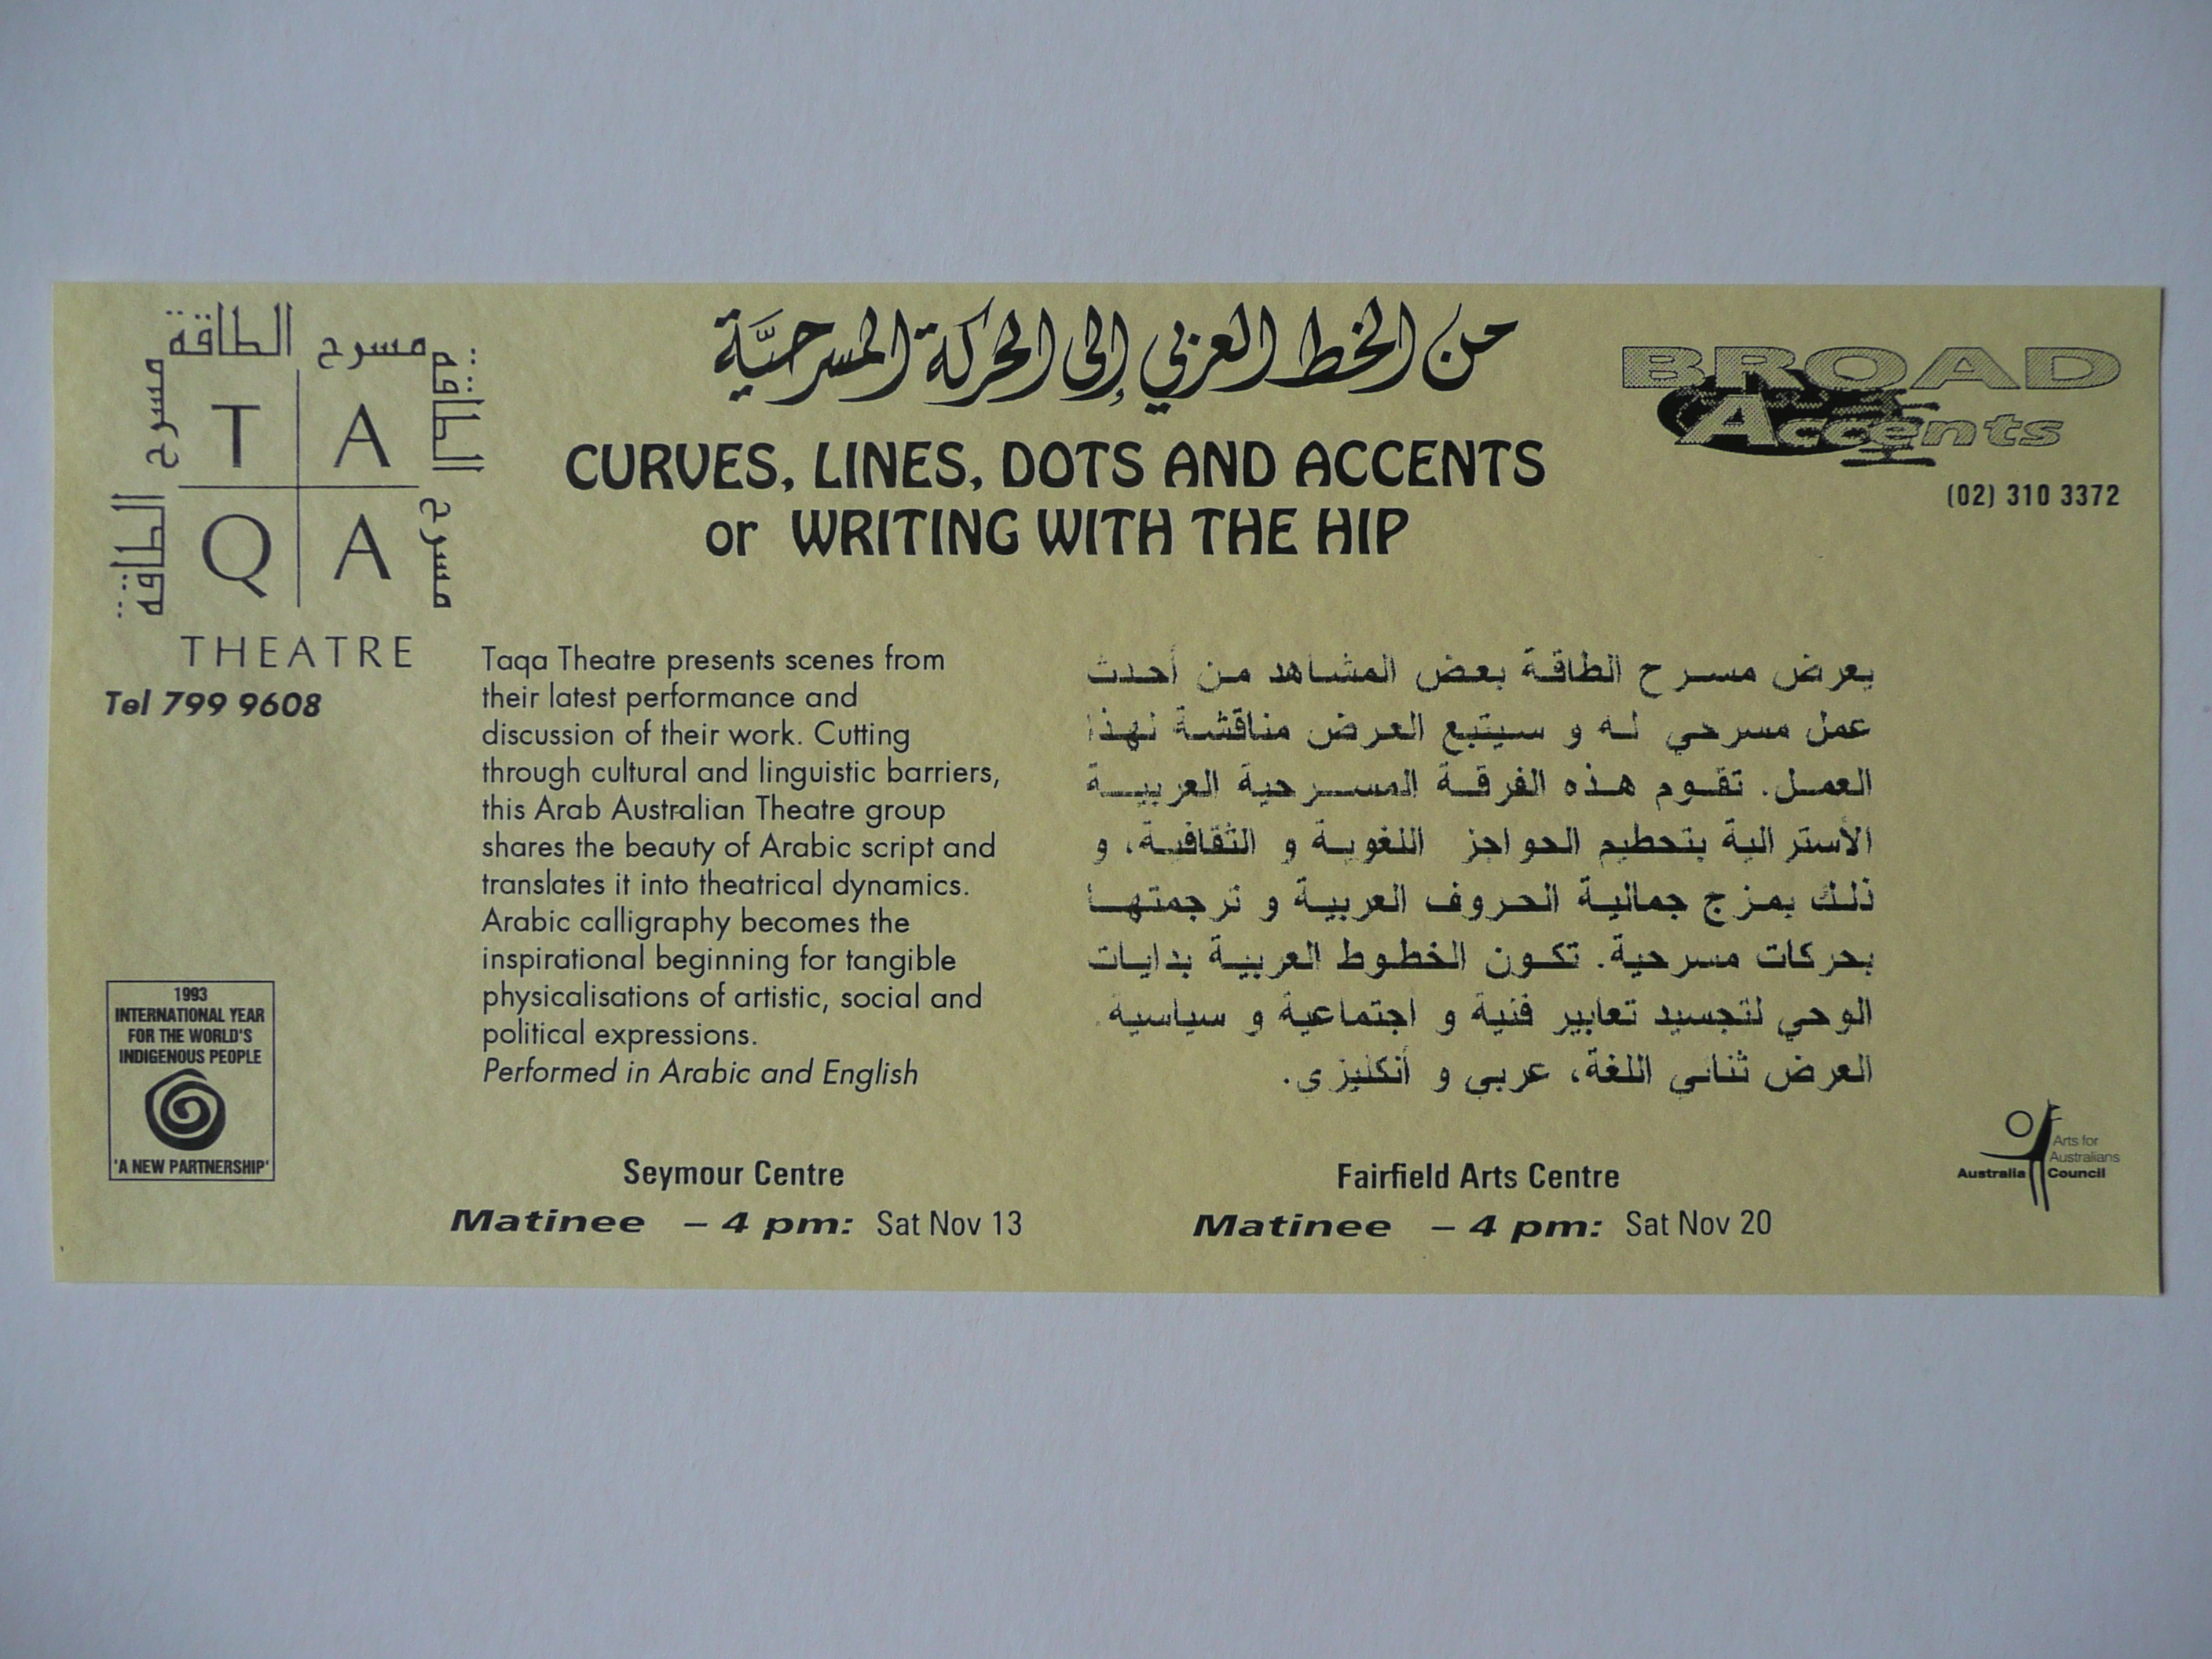 مسرح الطاقة
مسرح الطاقة
مسرح الطاقة
T A
Q A
THEATRE
Tel 799 9608
من الخط العربي إلى الحركة المسرحيَّة
CURVES, LINES, DOTS AND ACCENTS
or WRITING WITH THE HIP
BROAD
Accents
(02) 310 3372
Taqa Theatre presents scenes from
their latest performance and
discussion of their work. Cutting
through cultural and linguistic barriers,
this Arab Australian Theatre group
shares the beauty of Arabic script and
translates it into theatrical dynamics.
Arabic calligraphy becomes the
inspirational beginning for tangible
physicalisations of artistic, social and
political expressions.
Performed in Arabic and English
يعرض مسرح الطاقة بعض المشاهد من أحدث
عمل مسرحي له و سيتبع العرض مناقشة لهذا
العمل. تقوم هذه الفرقة المسرحية العربية
الأسترالية بتحطيم الحواجز اللغوية و الثقافية، و
ذلك بمزج جمالية الحروف العربية و ترجمتها
بحركات مسرحية. تكون الخطوط العربية بدايات
الوحي لتجسيد تعابير فنية و اجتماعية و سياسية.
العرض ثنائي اللغة، عربي و أنكليزي.
1993
INTERNATIONAL YEAR
FOR THE WORLD'S
INDIGENOUS PEOPLE
'A NEW PARTNERSHIP'
Seymour Centre
Matinee – 4 pm: Sat Nov 13
Fairfield Arts Centre
Matinee – 4 pm: Sat Nov 20
Arts for
Australians
Australia Council